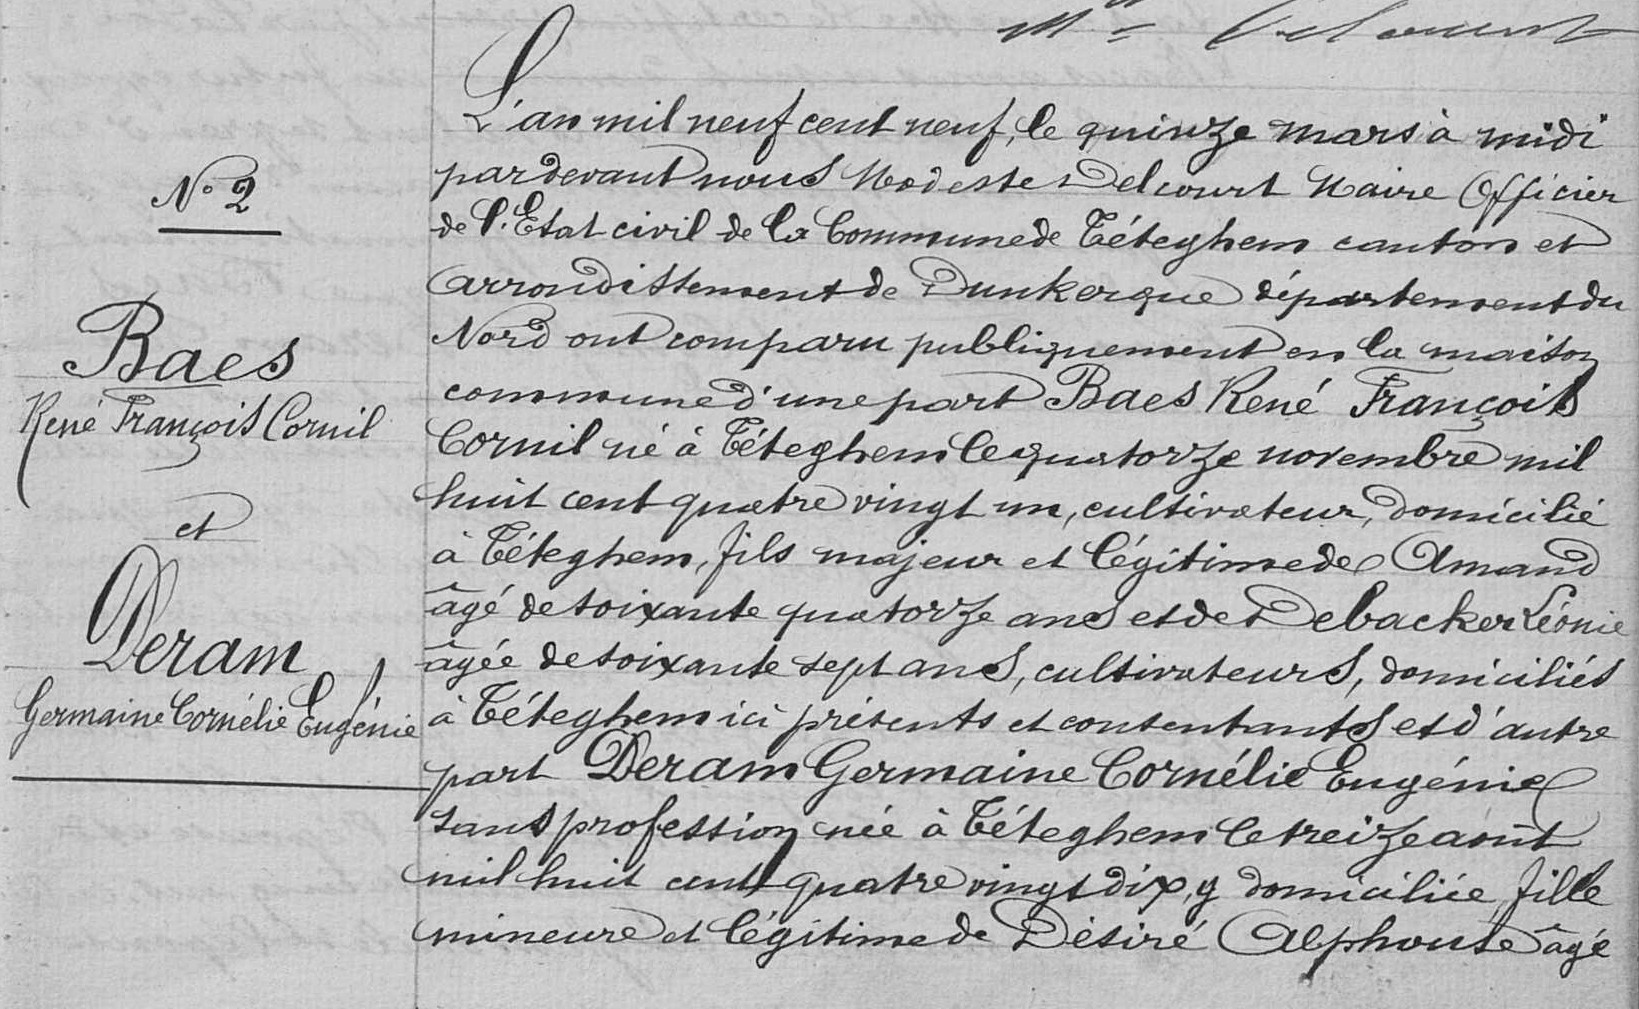 N° 2
Baes
René François Cornil
et
Deram
Germaine Cornélie Eugénie
Delcourt
L'an mil neuf cent neuf, le quinze mars à midi
par devant nous Modeste Delcourt Maire Officier
de l'Etat civil de la Commune de Téteghem canton et
arrondissement de Dunkerque département du
Nord ont comparu publiquement en la maison
commune d'une part Baes René François
Cornil né à Téteghem le quatorze novembre mil
huit cent quatre vingt un, cultivateur, domicilié
à Téteghem, fils majeur et légitime de Amand
âgé de soixante quatorze ans et de Debacker Léonie
âgée de soixante sept ans, cultivateurs, domiciliés
à Téteghem ici présents et consentants et d'autre
part Deram Germaine Cornélie Eugénie
sans profession née à Téteghem le treize août
mil huit cent quatre vingt dix, y domiciliée, fille
mineure et légitime de Désiré Alphonse âgé